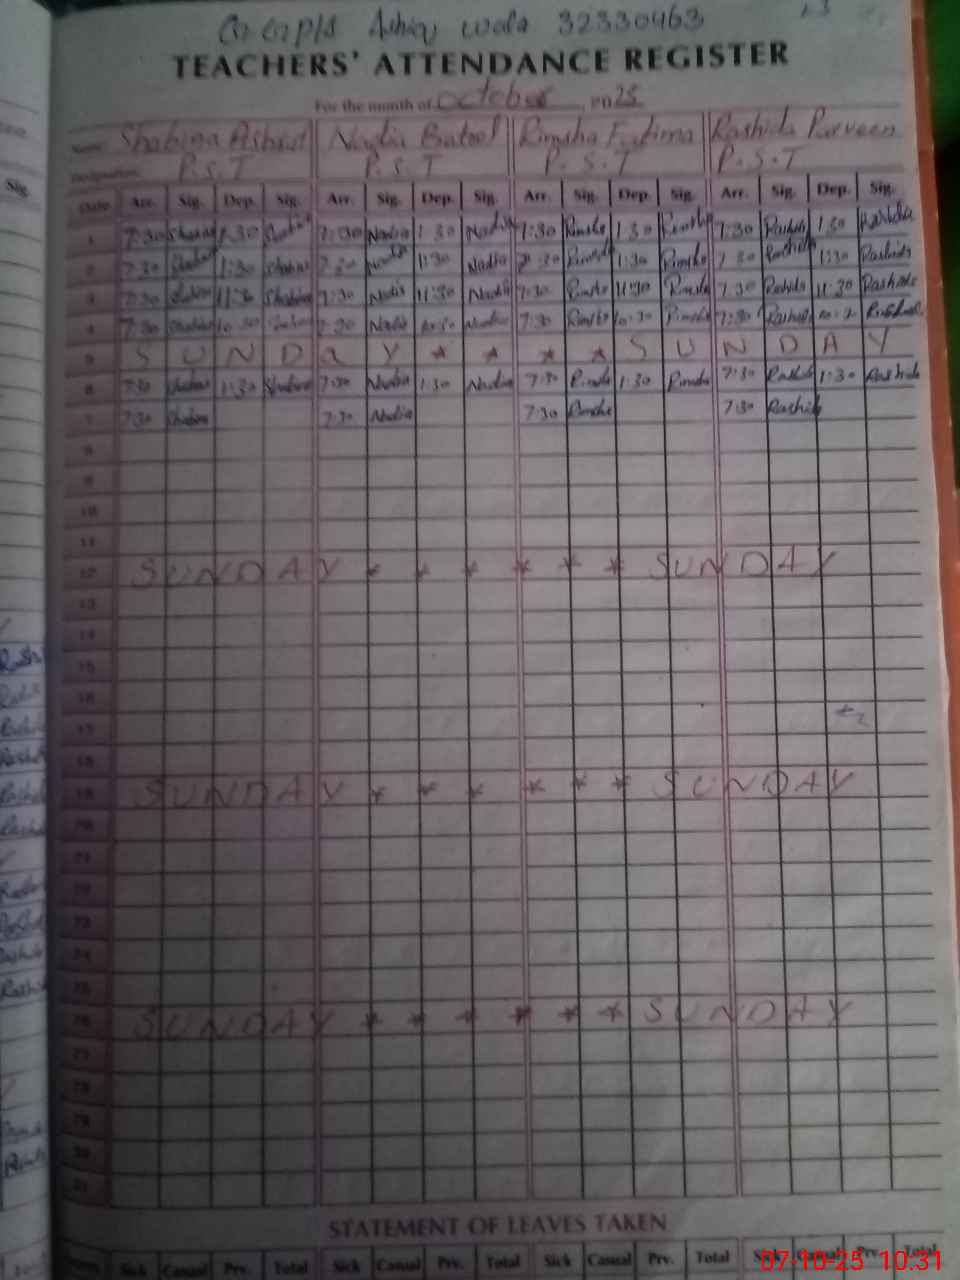 32330463
TEACHERS' ATTENDANCE REGISTER
For the month of October 2025
Name Shabina Ashraf Nadia Batool Rimsha Fatima Rashida Parveen
Designation P.S.T P.S.T P.S.T P.S.T
Date Arr. Sig. Dep. Sig. Arr. Sig. Dep. Sig. Arr. Sig. Dep. Sig. Arr. Sig. Dep. Sig.
1 7:30 1:30 7:30 Nadia 1:30 Nadia 7:30 Rimsha 1:30 Rimsha 7:30 Rashida 1:30 Rashida
2 7:30 1:30 Shabina 7:30 Nadia 1:30 Nadia 7:30 Rimsha 1:30 Rimsha 7:30 Rashida 1:30 Rashida
3 7:30 11:30 Shabina 7:30 Nadia 11:30 Nadia 7:30 Rimsha 11:30 Rimsha 7:30 Rashida 11:30 Rashida
4 7:30 Shabina 10:30 7:30 Nadia 10:30 Nadia 7:30 Rimsha 10:30 Rimsha 7:30 Rashida 10:30
5 S U N D a Y * * * * S U N D A Y
6 7:30 Shabina 1:30 Shabina 7:30 Nadia 1:30 Nadia 7:30 Rimsha 1:30 Rimsha 7:30 Rashida 1:30 Rashida
7 7:30 Shabina 7:30 Nadia 7:30 Rimsha 7:30 Rashida
8
9
10
11
12 SUNDAY * * * * * * SUNDAY
13
14
15
16
17
18
19 SUNDAY * * * * * * SUNDAY
20
21
22
23
24
25
26 SUNDAY * * * * * * SUNDAY
27
28
29
30
31
STATEMENT OF LEAVES TAKEN
Sick Casual Prv. Total Sick Casual Prv. Total Sick Casual Prv. Total Sick Casual Prv. Total
07-10-25 10:31